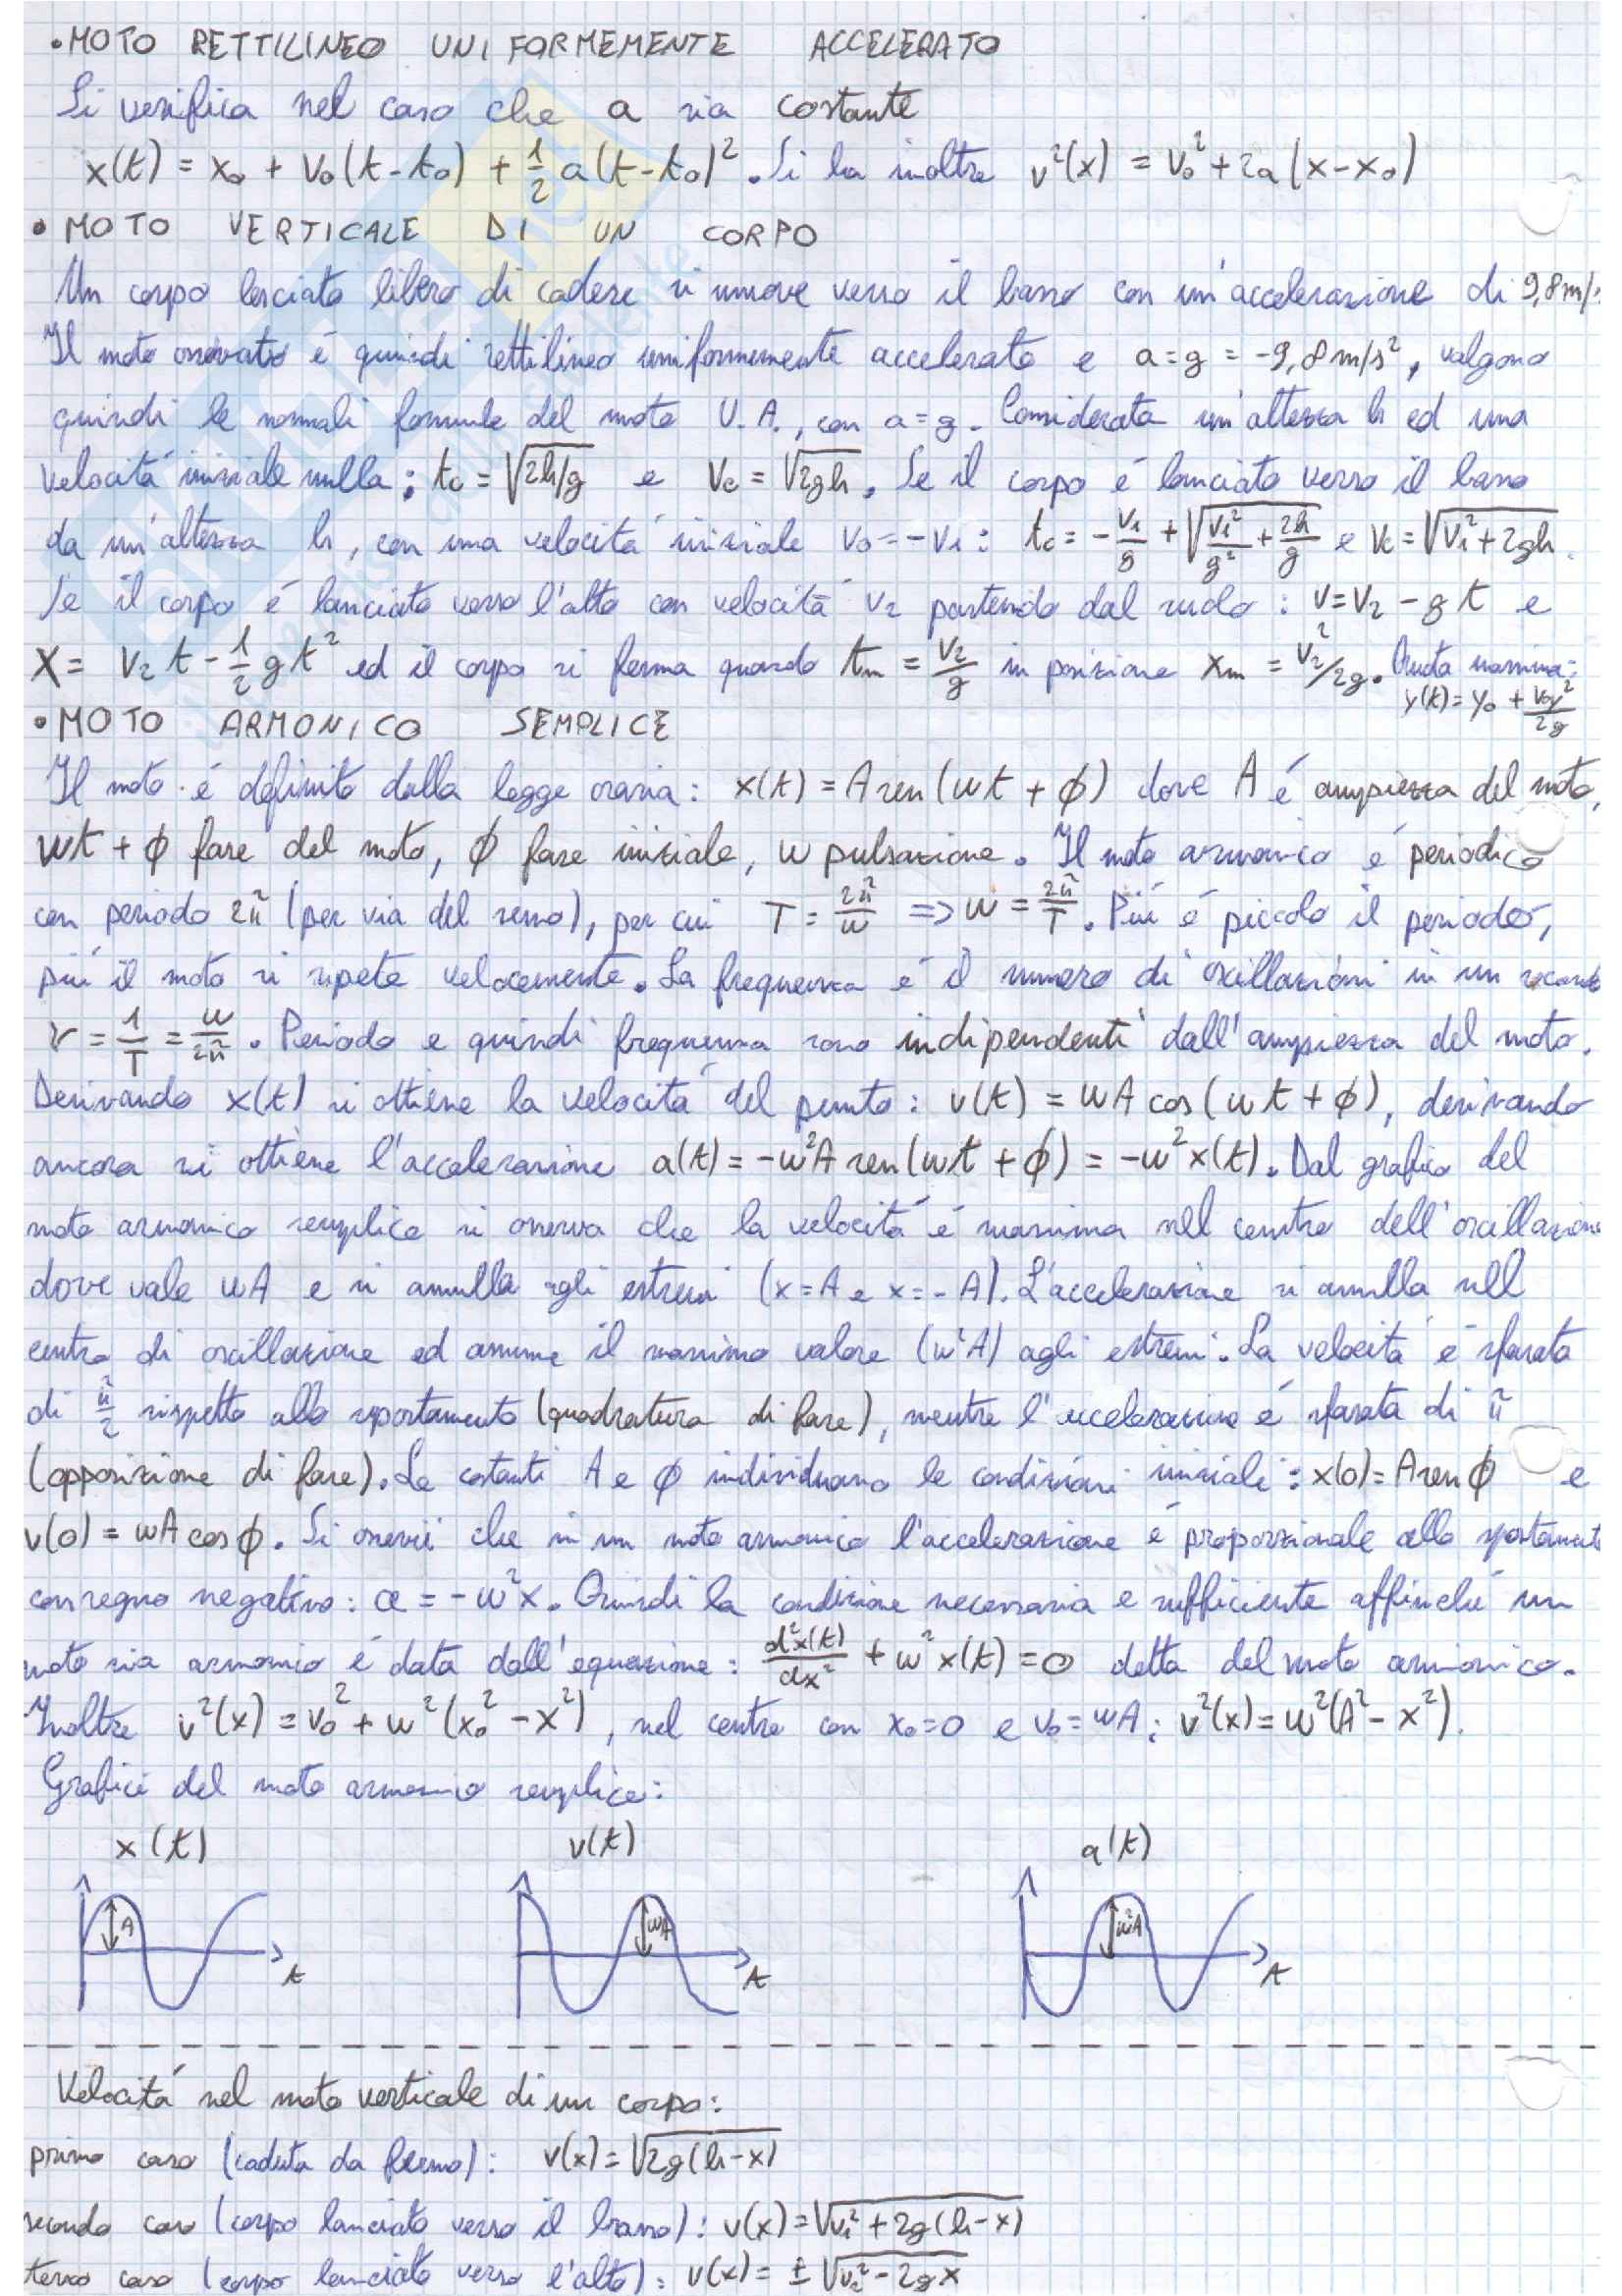 • MOTO RETTILINEO UNIFORMEMENTE ACCELERATO
Si verifica nel caso che a sia costante
x(t) = x₀ + v₀(t-t₀) + 1/2 a(t-t₀)². Si ha inoltre v²(x) = v₀² + 2a(x-x₀)
• MOTO VERTICALE DI UN CORPO
Un corpo lasciato libero di cadere si muove verso il basso con un'accelerazione di 9,8m/
Il moto osservato é quindi rettilineo uniformemente accelerato e a=g = -9,8m/s², valgono
quindi le normali formule del moto U.A., con a=g. Considerata un'altezza h ed una
velocitá iniziale nulla: tc = √2h/g e Vc = √2gh. Se il corpo é lanciato verso il basso
da un'altezza h, con una velocitá iniziale V₀=-V₁: tc = -V₁/g + √(V₁²/g² + 2h/g) e Vc = √(V₁²+2gh).
Se il corpo é lanciato verso l'alto con velocitá V₂ partendo dal suolo: V=V₂-gt e
X = V₂t - 1/2 gt² ed il corpo si ferma quando tm = V₂/g in posizione Xm = V₂²/2g. Quota massima:
y(t) = y₀ + v₀y²/2g
• MOTO ARMONICO SEMPLICE
Il moto é definito dalla legge oraria: x(t) = A sen(wt + ϕ) dove A é ampiezza del moto,
wt + ϕ fase del moto, ϕ fase iniziale, w pulsazione. Il moto armonico é periodico
con periodo 2π (per via del seno), per cui T = 2π/w => w = 2π/T. Piú é piccolo il periodo,
piú il moto si ripete velocemente. La frequenza é il numero di oscillazioni in un secondo
ν = 1/T = w/2π. Periodo e quindi frequenza sono indipendenti dall'ampiezza del moto.
Derivando x(t) si ottiene la velocitá del punto: v(t) = wA cos(wt + ϕ), derivando
ancora si ottiene l'accelerazione a(t) = -w²A sen(wt + ϕ) = -w²x(t). Dal grafico del
moto armonico semplice si osserva che la velocitá é massima nel centro dell'oscillazione
dove vale wA e si annulla agli estremi (x=A e x=-A). L'accelerazione si annulla nel
centro di oscillazione ed assume il massimo valore (w²A) agli estremi. La velocitá é sfasata
di π/2 rispetto allo spostamento (quadratura di fase), mentre l'accelerazione é sfasata di π
(opposizione di fase). Le costanti A e ϕ individuano le condizioni iniziali: x(0) = A sen ϕ e
v(0) = wA cos ϕ. Si osservi che in un moto armonico l'accelerazione é proporzionale allo spostamento
con segno negativo: a = -w²x. Quindi la condizione necessaria e sufficiente affinché un
moto sia armonio é data dall'equazione: d²x(t)/dx² + w²x(t) = 0 detta del moto armonico.
Inoltre v²(x) = v₀² + w²(x₀² - x²), nel centro con x₀=0 e v₀=wA: v²(x) = w²(A² - x²).
Grafici del moto armonio semplice:
x(t) v(t) a(t)
A wA w²A
t t t
Velocitá nel moto verticale di un corpo:
primo caso (caduta da fermo): v(x) = √2g(h-x)
secondo caso (corpo lanciato verso il basso): v(x) = √v₁² + 2g(h-x)
terzo caso (corpo lanciato verso l'alto): v(x) = ± √v₂² - 2gx